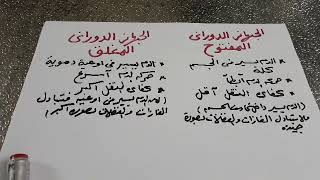 الجهاز الدوراني
المفتوح
* الدم يسير من الجسم
كله
* حركة الدم أبطأ
* كفاءة النقل أقل
(الدم يسير داخل الجسم)
الغازات والفضلات بصورة
جيدة
الجهاز الدوراني
المغلق
* الدم يسير في اوعية دموية
* حركة الدم أسرع
* كفاءة النقل أكبر
(لان الدم يسير من اوعية فتبادل
الغازات والفضلات بصورة أكبر)